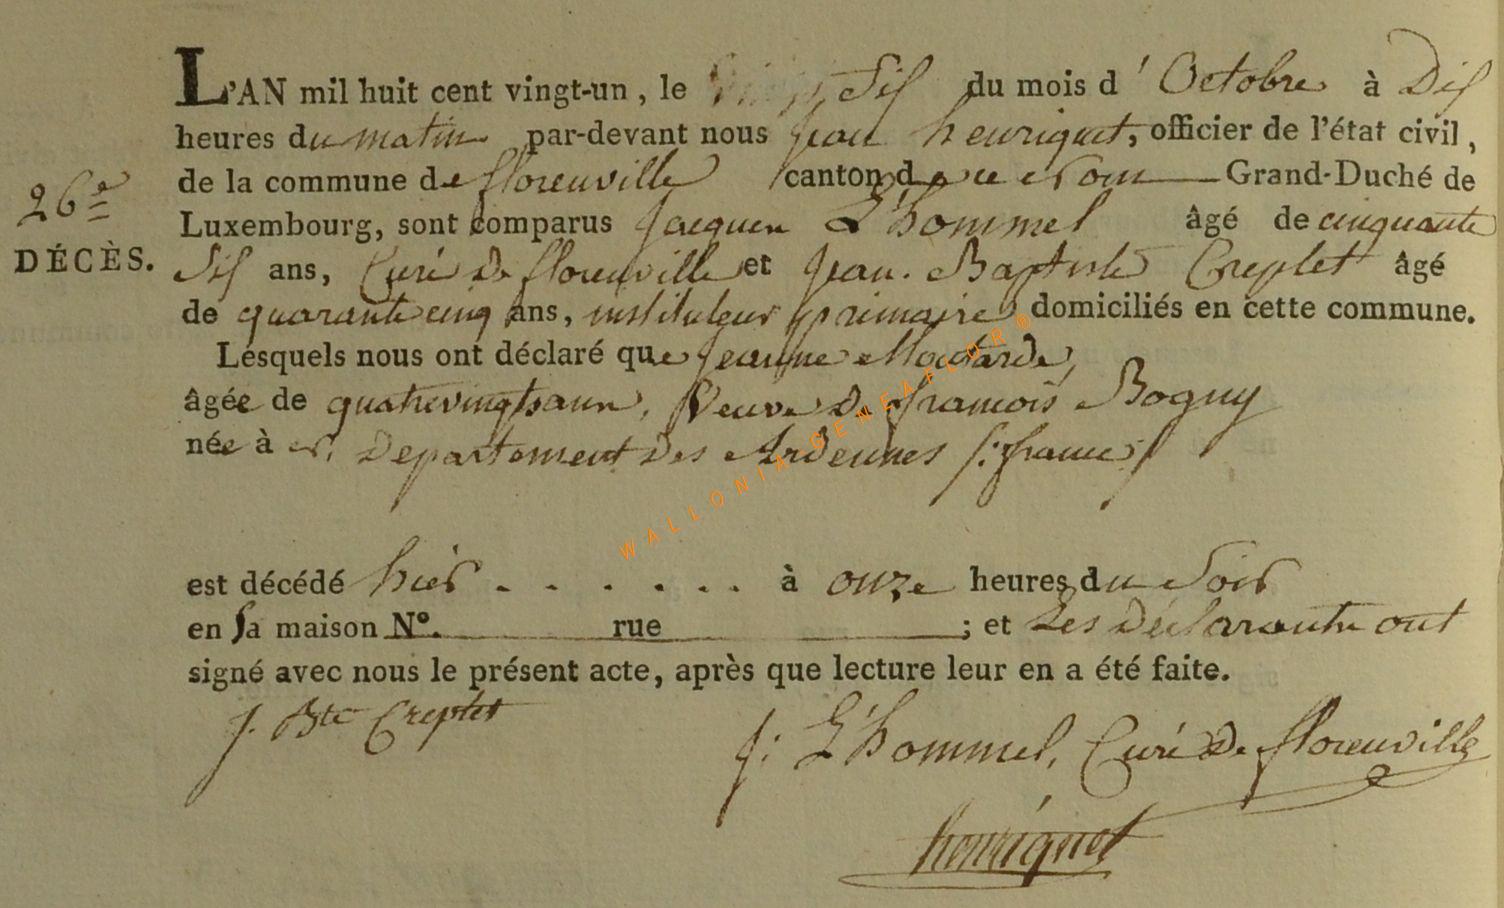 L'AN mil huit cent vingt-un, le Vingt Six du mois d'Octobre à Dix
heures du matin par-devant nous Jean henriquet, officier de l'état civil,
26e
de la commune de florenville canton de ce nom Grand-Duché de
Luxembourg, sont comparus Jacques L'hommel âgé de cinquante
DÉCÈS.
Six ans, Curé de florenville et Jean Baptiste Creplet âgé
de quarante cinq ans, instituteur primaire domiciliés en cette commune.
Lesquels nous ont déclaré que Jeanne Moutarde,
âgée de quatrevingts ans, Veuve de françois Bogny
née à Departement des Ardennes (france)
est décédé hier . . . . . . à onze heures du Soir
en sa maison N°. rue ; et Les Déclarants ont
signé avec nous le présent acte, après que lecture leur en a été faite.
J. Bte Creplet
J: L'hommel, Curé de florenville
henriquet
WALLONIA GENEAFLOR®